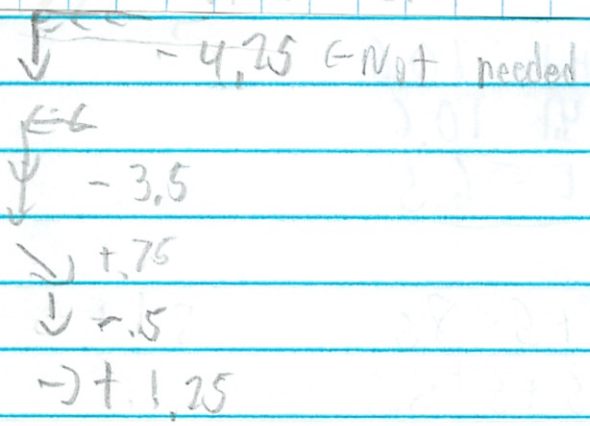 ↓ - 4.25 ← Not needed
- 3.5
↘ +.75
↓ -.5
→ + 1.25